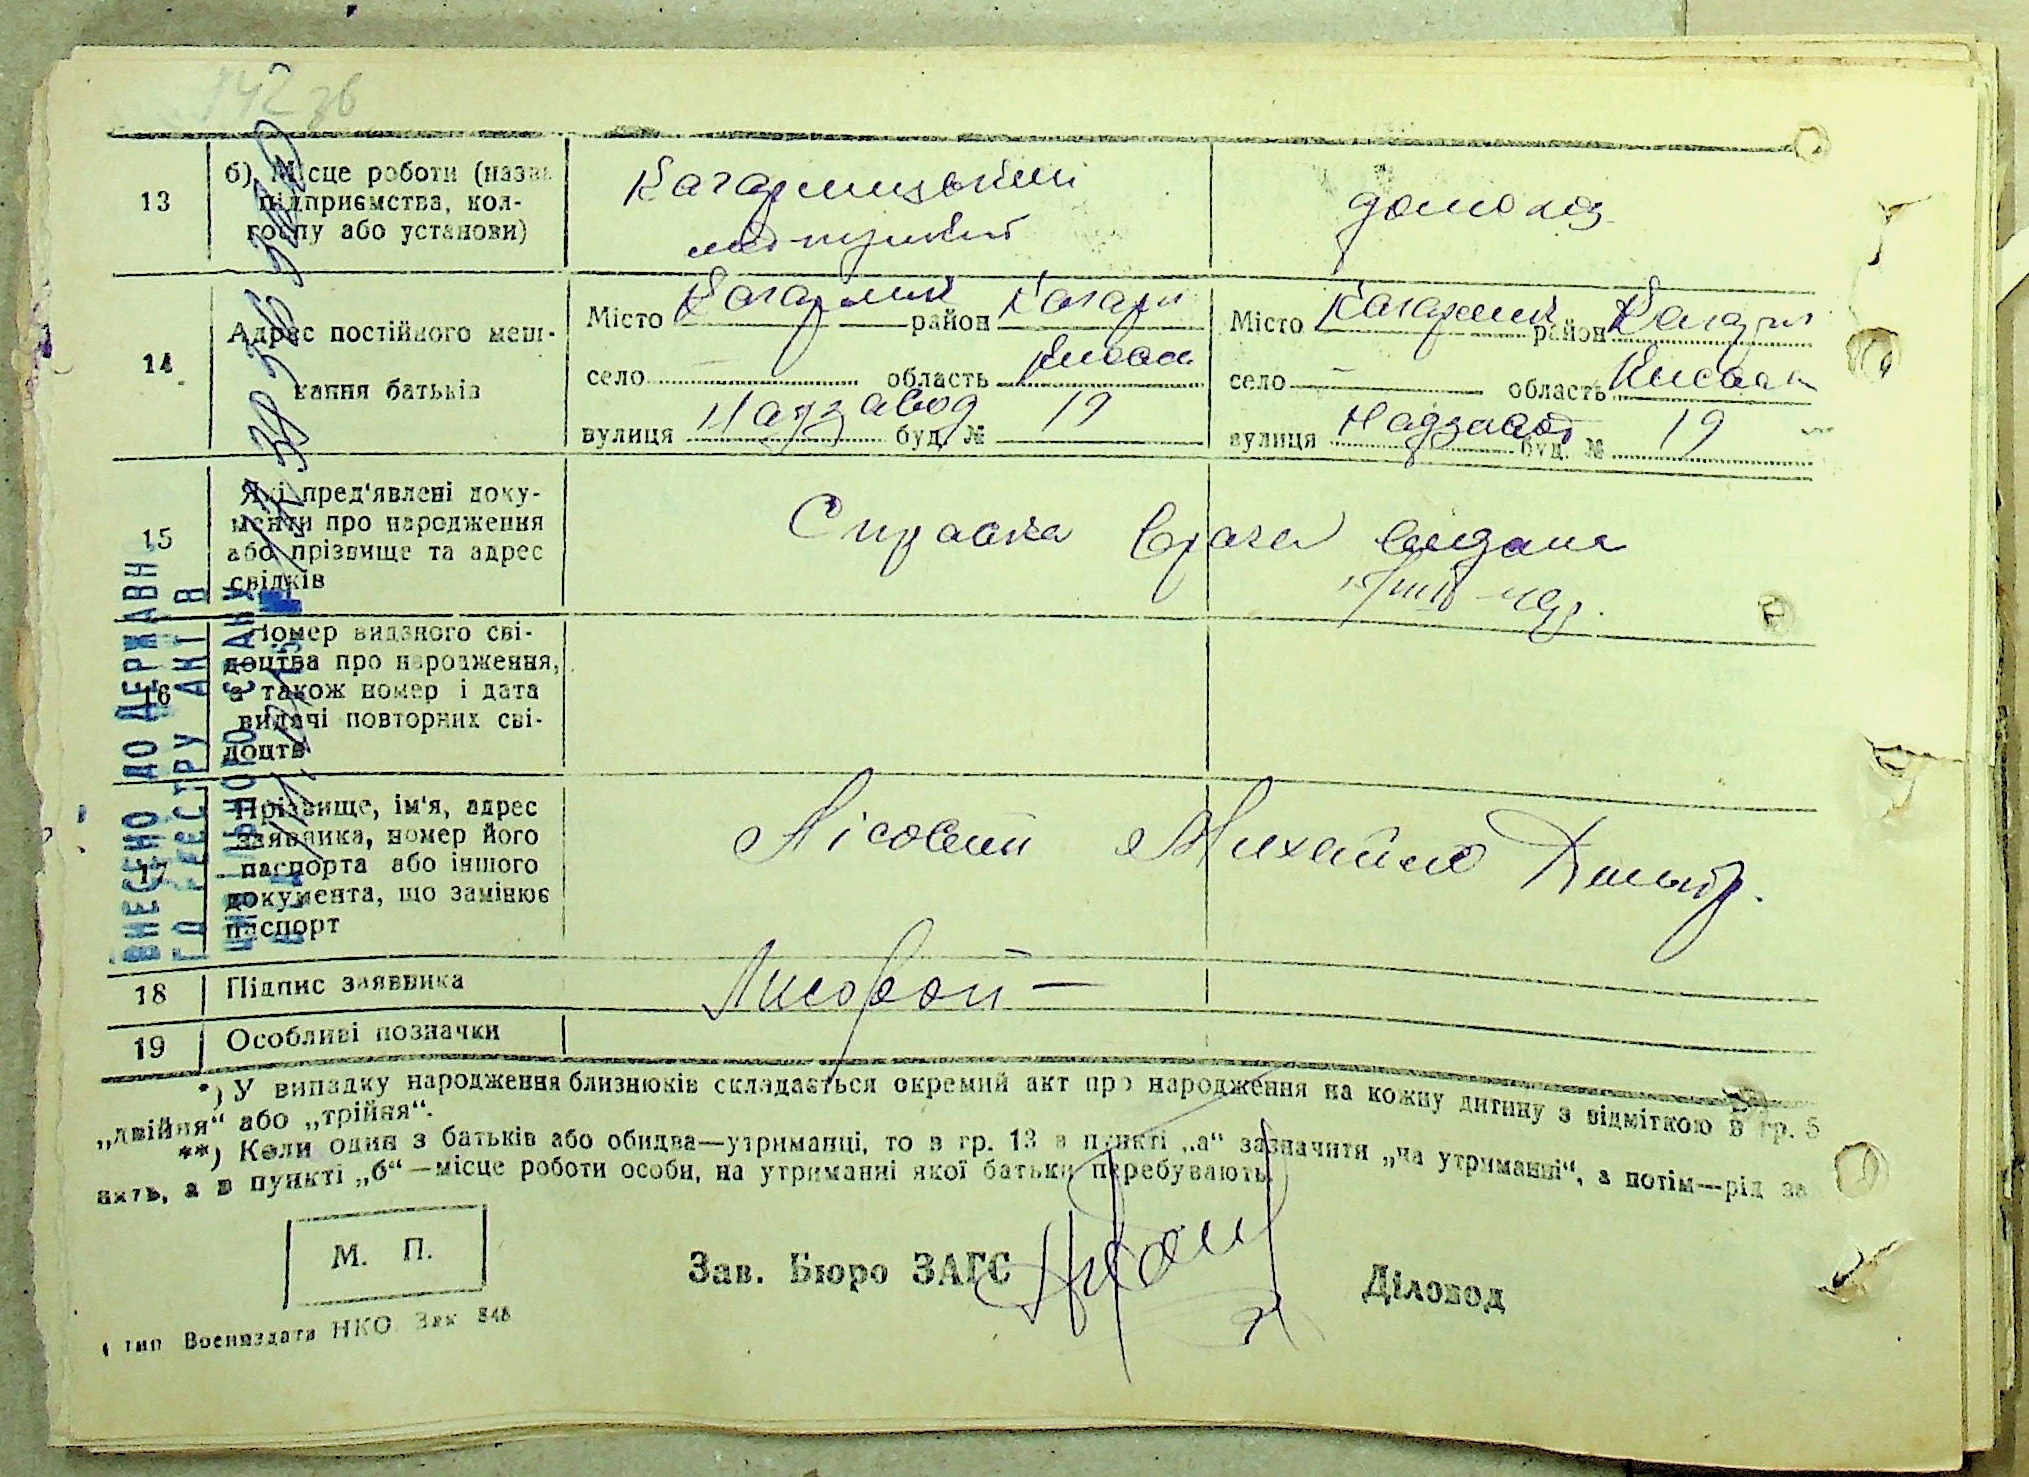 142 зв
13
б) Місце роботи (назва
підприємства, кол-
госпу або установи)
Кагарлицький
домохоз.
14
Адрес постійного меш-
кання батьків
Місто Кагарлик район Кагарл
село — область Київськ
вулиця Надзавод буд. № 19
Місто Кагарлик район Кагарл
село — область Київськ
вулиця Надзавод буд. № 19
15
Які пред'явлені доку-
менти про народження
або прізвище та адрес
свідків
Справка врача видана
16
Номер виданого сві-
доцтва про народження,
а також номер і дата
видачі повторних сві-
доцтв
17
Прізвище, ім'я, адрес
заявника, номер його
паспорта або іншого
документа, що замінює
паспорт
Лісовий Михайло Дмитр.
18
Підпис заявника
Лисовой
19
Особливі позначки
*) У випадку народження близнюків складається окремий акт про народження на кожну дитину з відміткою в гр. 5
„двійня“ або „трійня“.
**) Коли один з батьків або обидва—утриманці, то в гр. 13 в пункті „а“ зазначити „на утриманні“, а потім—рід за
нять, а в пункті „б“—місце роботи особи, на утриманні якої батьки перебувають.
М. П.
Зав. Бюро ЗАГС
Діловод
тип Воениздата НКО Зак 848
ВНЕСЕНО ДО ДЕРЖАВН
ГО РЕЄСТРУ АКТІВ
ЦИВІЛЬНОГО СТАНУ